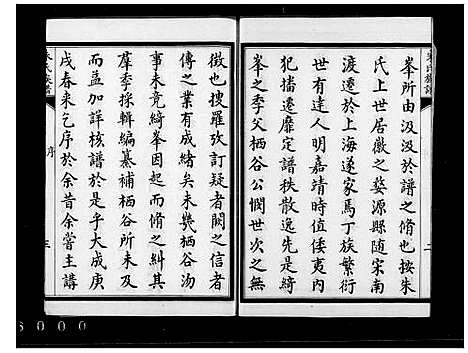 朱氏族譜
二
峯所由汲汲於譜之脩也按朱
氏上世居徽之婺源縣隨宋南
渡遷於上海遂家焉丁族繁衍
世有達人明嘉靖時值倭夷内
犯播遷靡定譜秩散逸先是綺
峯之季父栖谷公憫世次之無
徴也搜羅攷訂疑者闕之信者
傳之業有成緒矣未幾栖谷沕
事未竟綺峯因起而脩之糾其
羣季採輯編纂補栖谷所未及
而益加詳核譜於是乎大成庚
戌春来乞序於余昔余嘗主講
朱氏族譜
序
三
6000